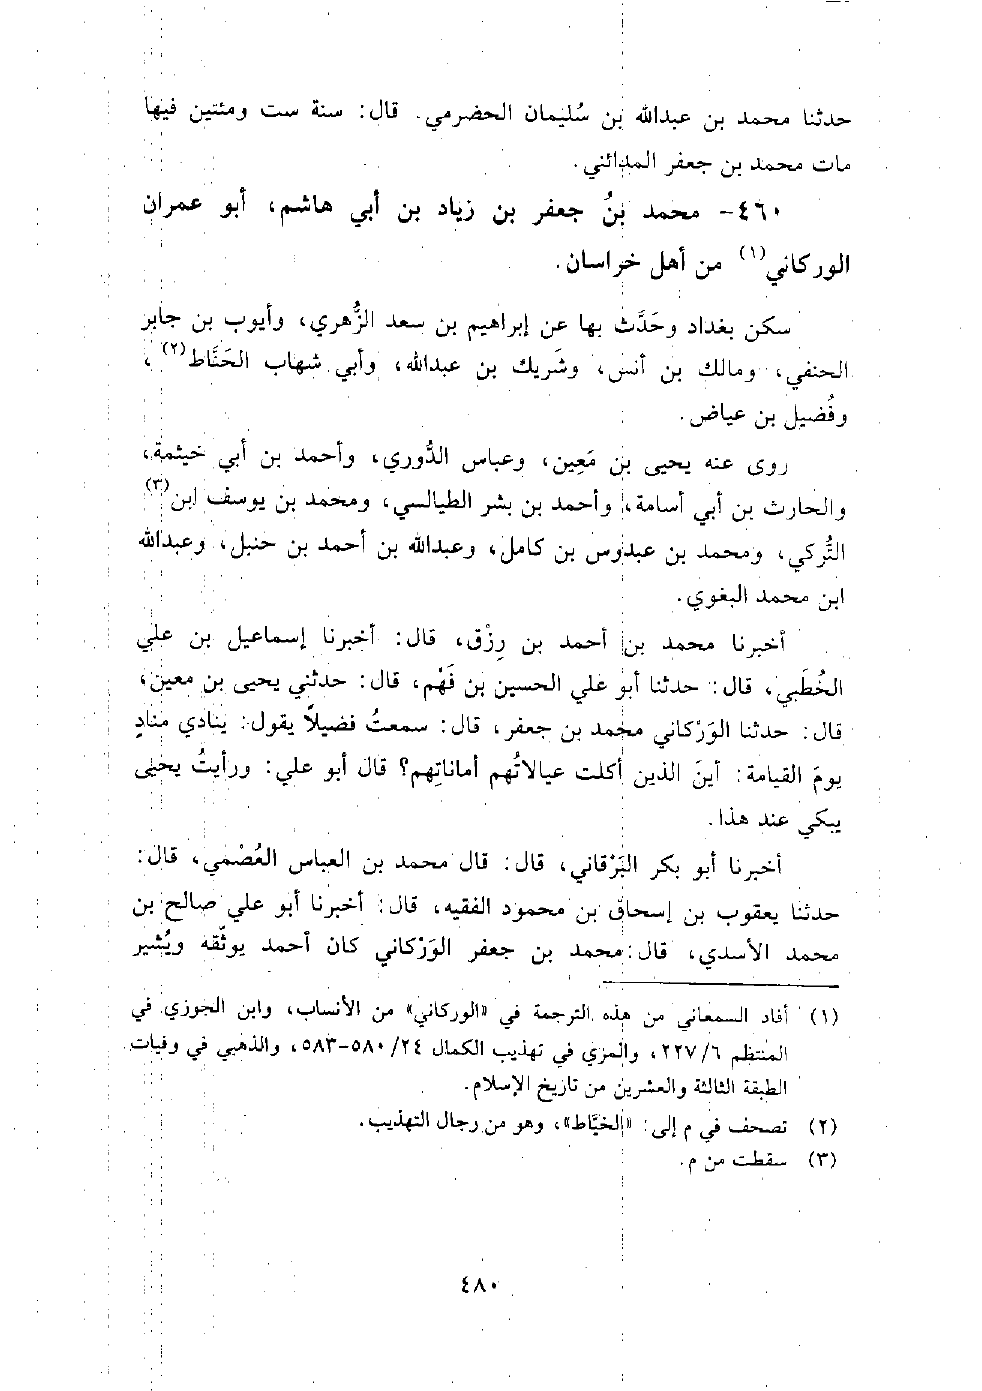 حدثنا محمد بن عبدالله بن سُليمان الحضرمي. قال: سنة ست ومئتين فيها
مات محمد بن جعفر المدائني.
٤٦٠- محمد بنُ جعفر بن زياد بن أبي هاشم، أبو عمران
الوركاني(١) من أهل خراسان.
سكن بغداد وحَدَّث بها عن إبراهيم بن سعد الزُّهري، وأيوب بن جابر
الحنفي، ومالك بن أنس، وشَريك بن عبدالله، وأبي شهاب الحَنَّاط(٢)،
وفُضيل بن عياض.
روى عنه يحيى بن مَعِين، وعباس الدُّوري، وأحمد بن أبي خيثمة،
والحارث بن أبي أسامة، وأحمد بن بشر الطيالسي، ومحمد بن يوسف ابن(٣)
التُّركي، ومحمد بن عبدوس بن كامل، وعبدالله بن أحمد بن حنبل، وعبدالله
ابن محمد البغوي.
أخبرنا محمد بن أحمد بن رِزْق، قال: أخبرنا إسماعيل بن علي
الخُطَبي، قال: حدثنا أبو علي الحسين بن فَهْم، قال: حدثني يحيى بن معين،
قال: حدثنا الوَرْكاني محمد بن جعفر، قال: سمعتُ فضيلاً يقول: ينادي منادٍ
يومَ القيامة: أينَ الذين أكلت عيالاتُهم أماناتِهم؟ قال أبو علي: ورأيتُ يحيى
يبكي عند هذا.
أخبرنا أبو بكر البَرْقاني، قال: قال محمد بن العباس العُصْمي، قال:
حدثنا يعقوب بن إسحاق بن محمود الفقيه، قال: أخبرنا أبو علي صالح بن
محمد الأسدي، قال: محمد بن جعفر الوَرْكاني كان أحمد يوثّقه ويُشير
(١) أفاد السمعاني من هذه الترجمة في «الوركاني» من الأنساب، وابن الجوزي في
المنتظم ٦/ ٢٢٧، والمزي في تهذيب الكمال ٢٤/ ٥٨٠-٥٨٣، والذهبي في وفيات
الطبقة الثالثة والعشرين من تاريخ الإسلام.
(٢) تصحف في م إلى: «الخيَّاط»، وهو من رجال التهذيب.
(٣) سقطت من م.
٤٨٠